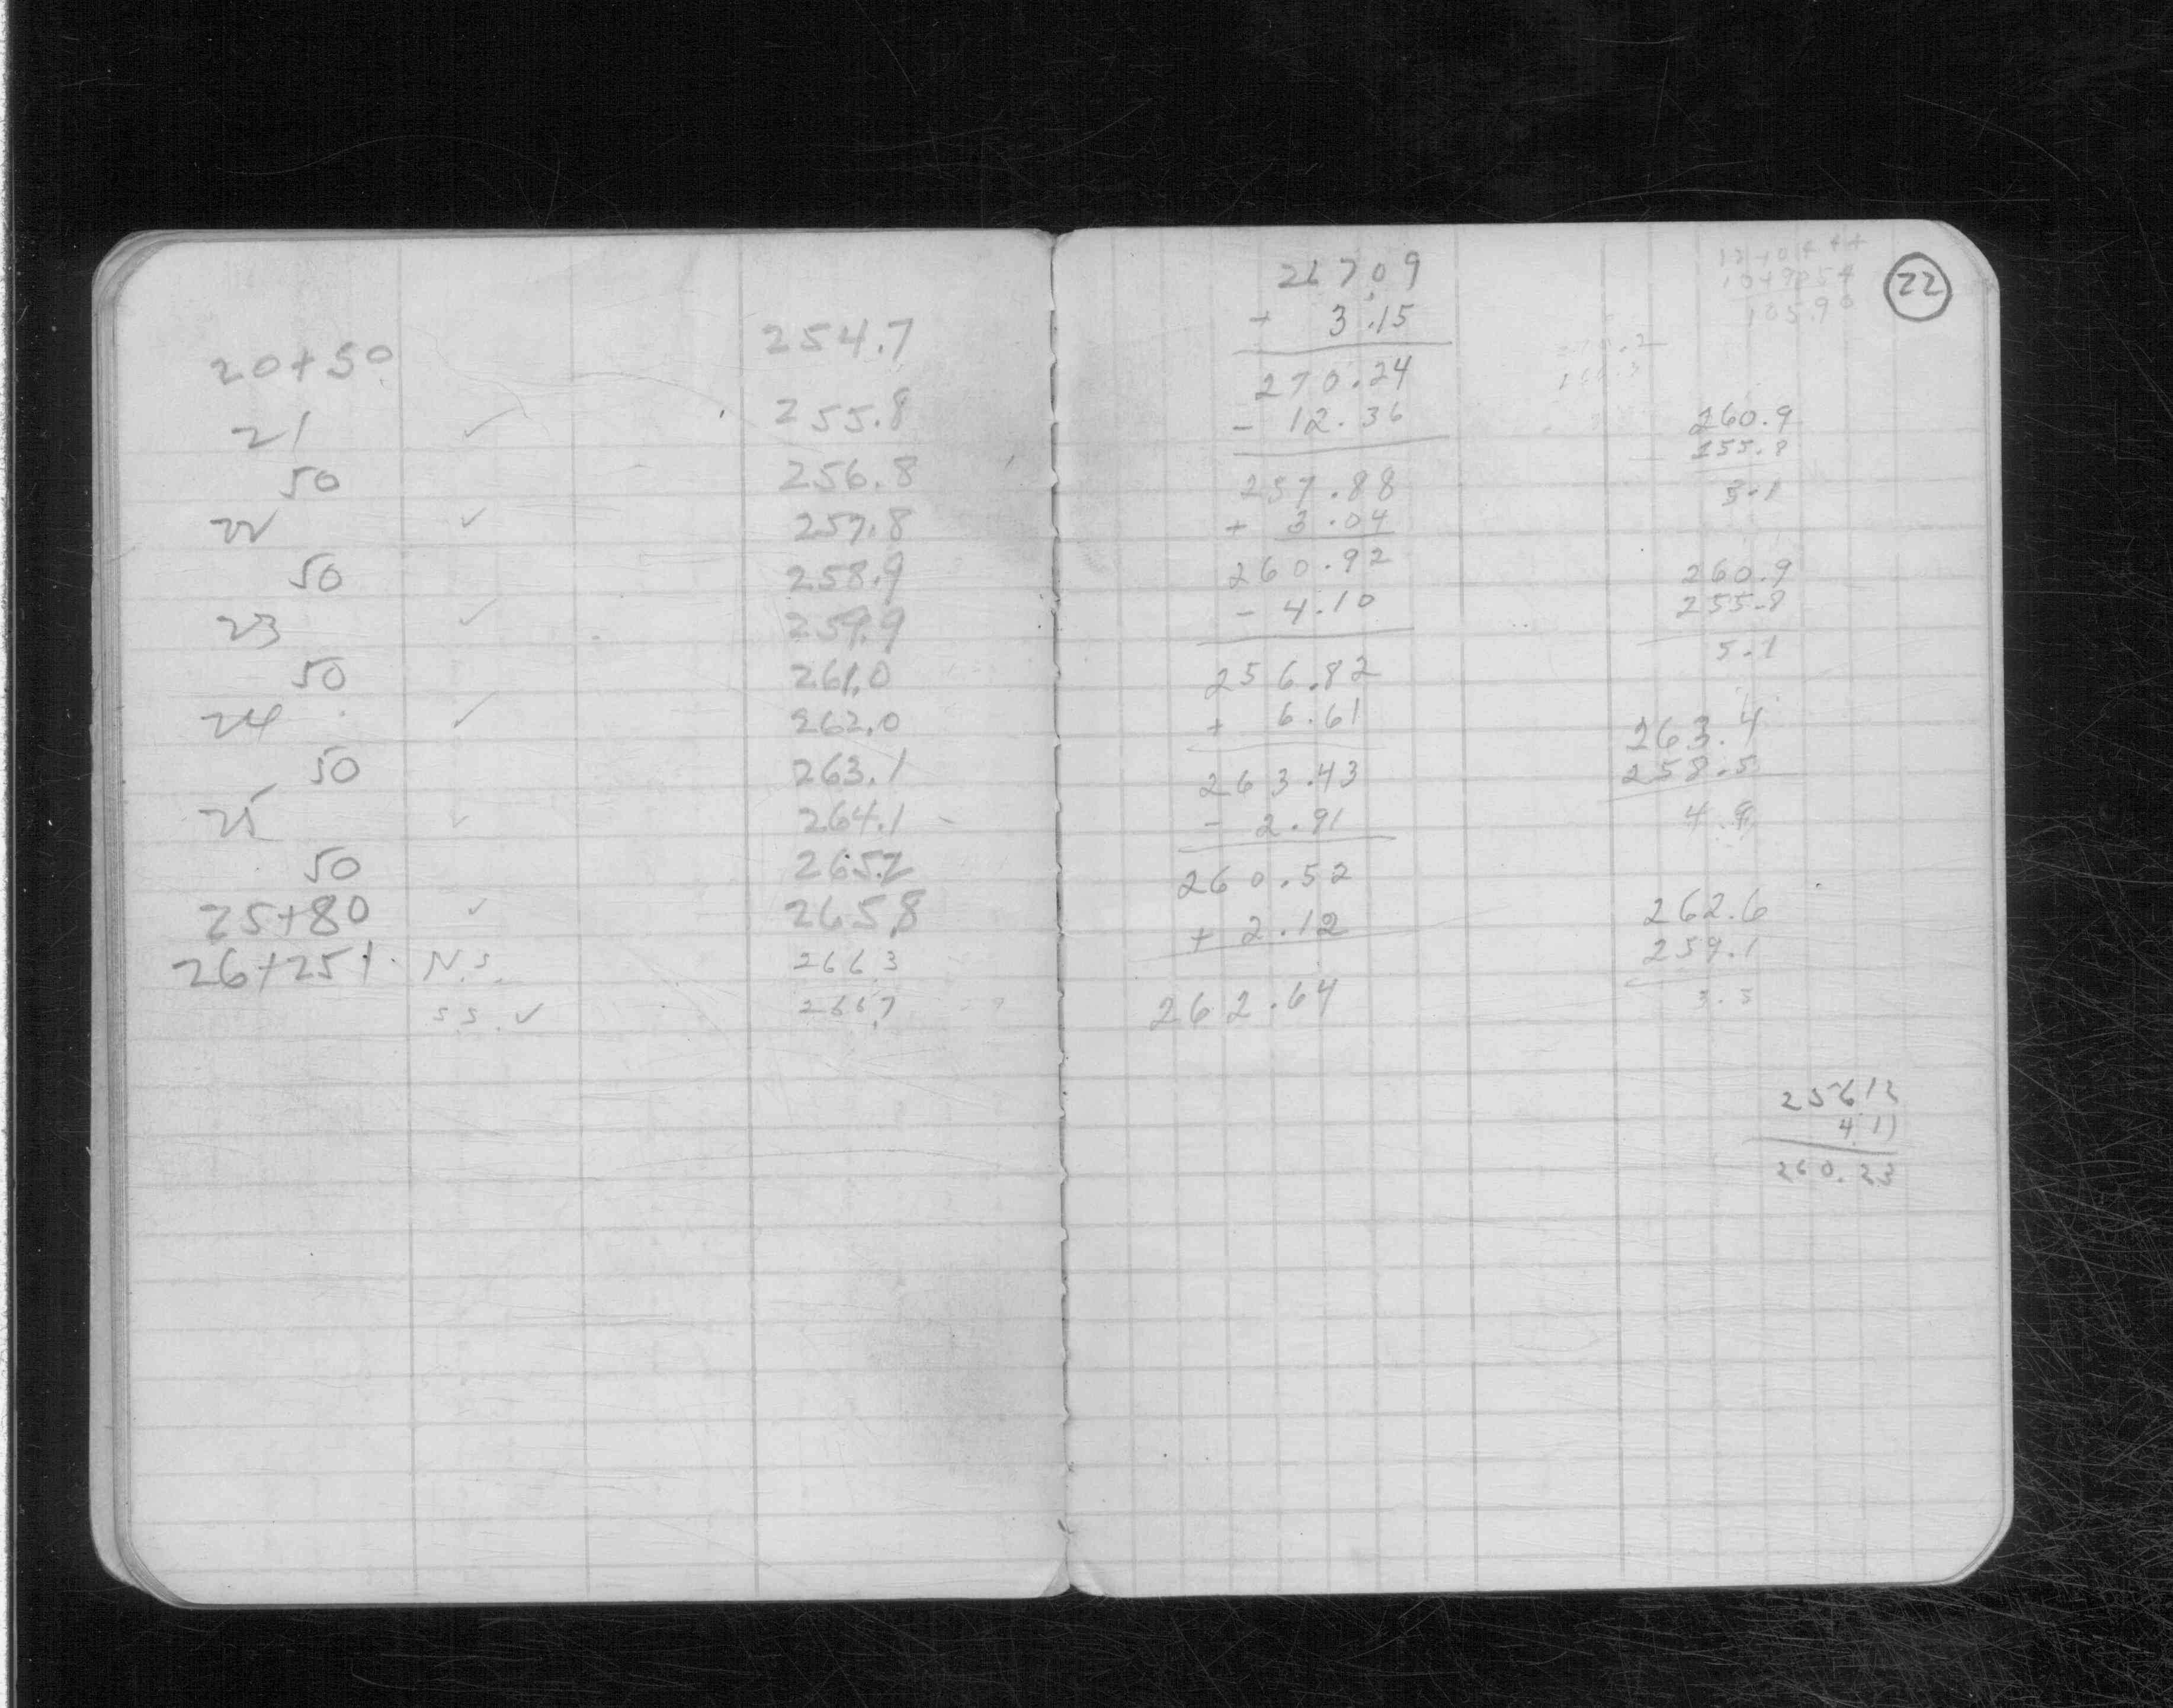 20+50 254.7
21 ✓ 255.8
50 256.8
22 ✓ 257.8
50 258.9
23 ✓ 259.9
50 261.0
24 ✓ 262.0
50 263.1
25 ✓ 264.1
50 265.2
25+80 ✓ 265.8
26+251 N.S. 266.3
S.S. ✓ 266.7
22
267.09
+ 3.15
270.24
- 12.36
257.88
+ 3.04
260.92
- 4.10
256.82
+ 6.61
263.43
- 2.91
260.52
+ 2.12
262.64
260.9
255.8
5.1
260.9
255.8
5.1
263.4
258.5
4.9
262.6
259.1
3.5
25612
4.11
260.23